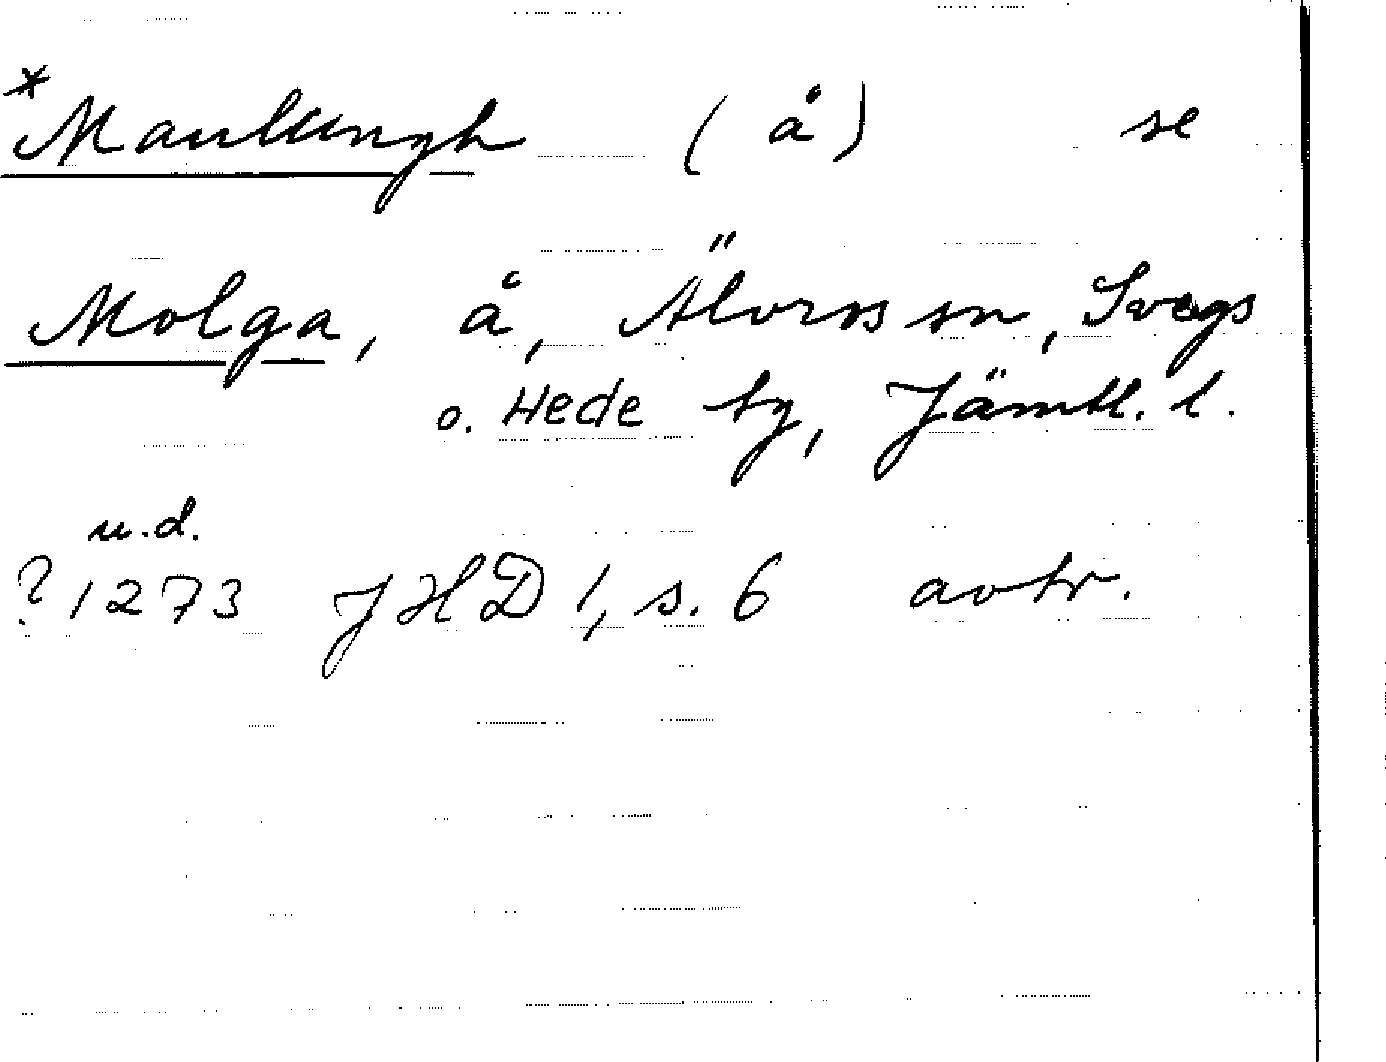 *Maulkungh (å) se
Molga, å, Älvros sn, Svegs
o. Hede tg, Jämtl. l.
u.d.
? 1273 JHD 1, s. 6 avtr.